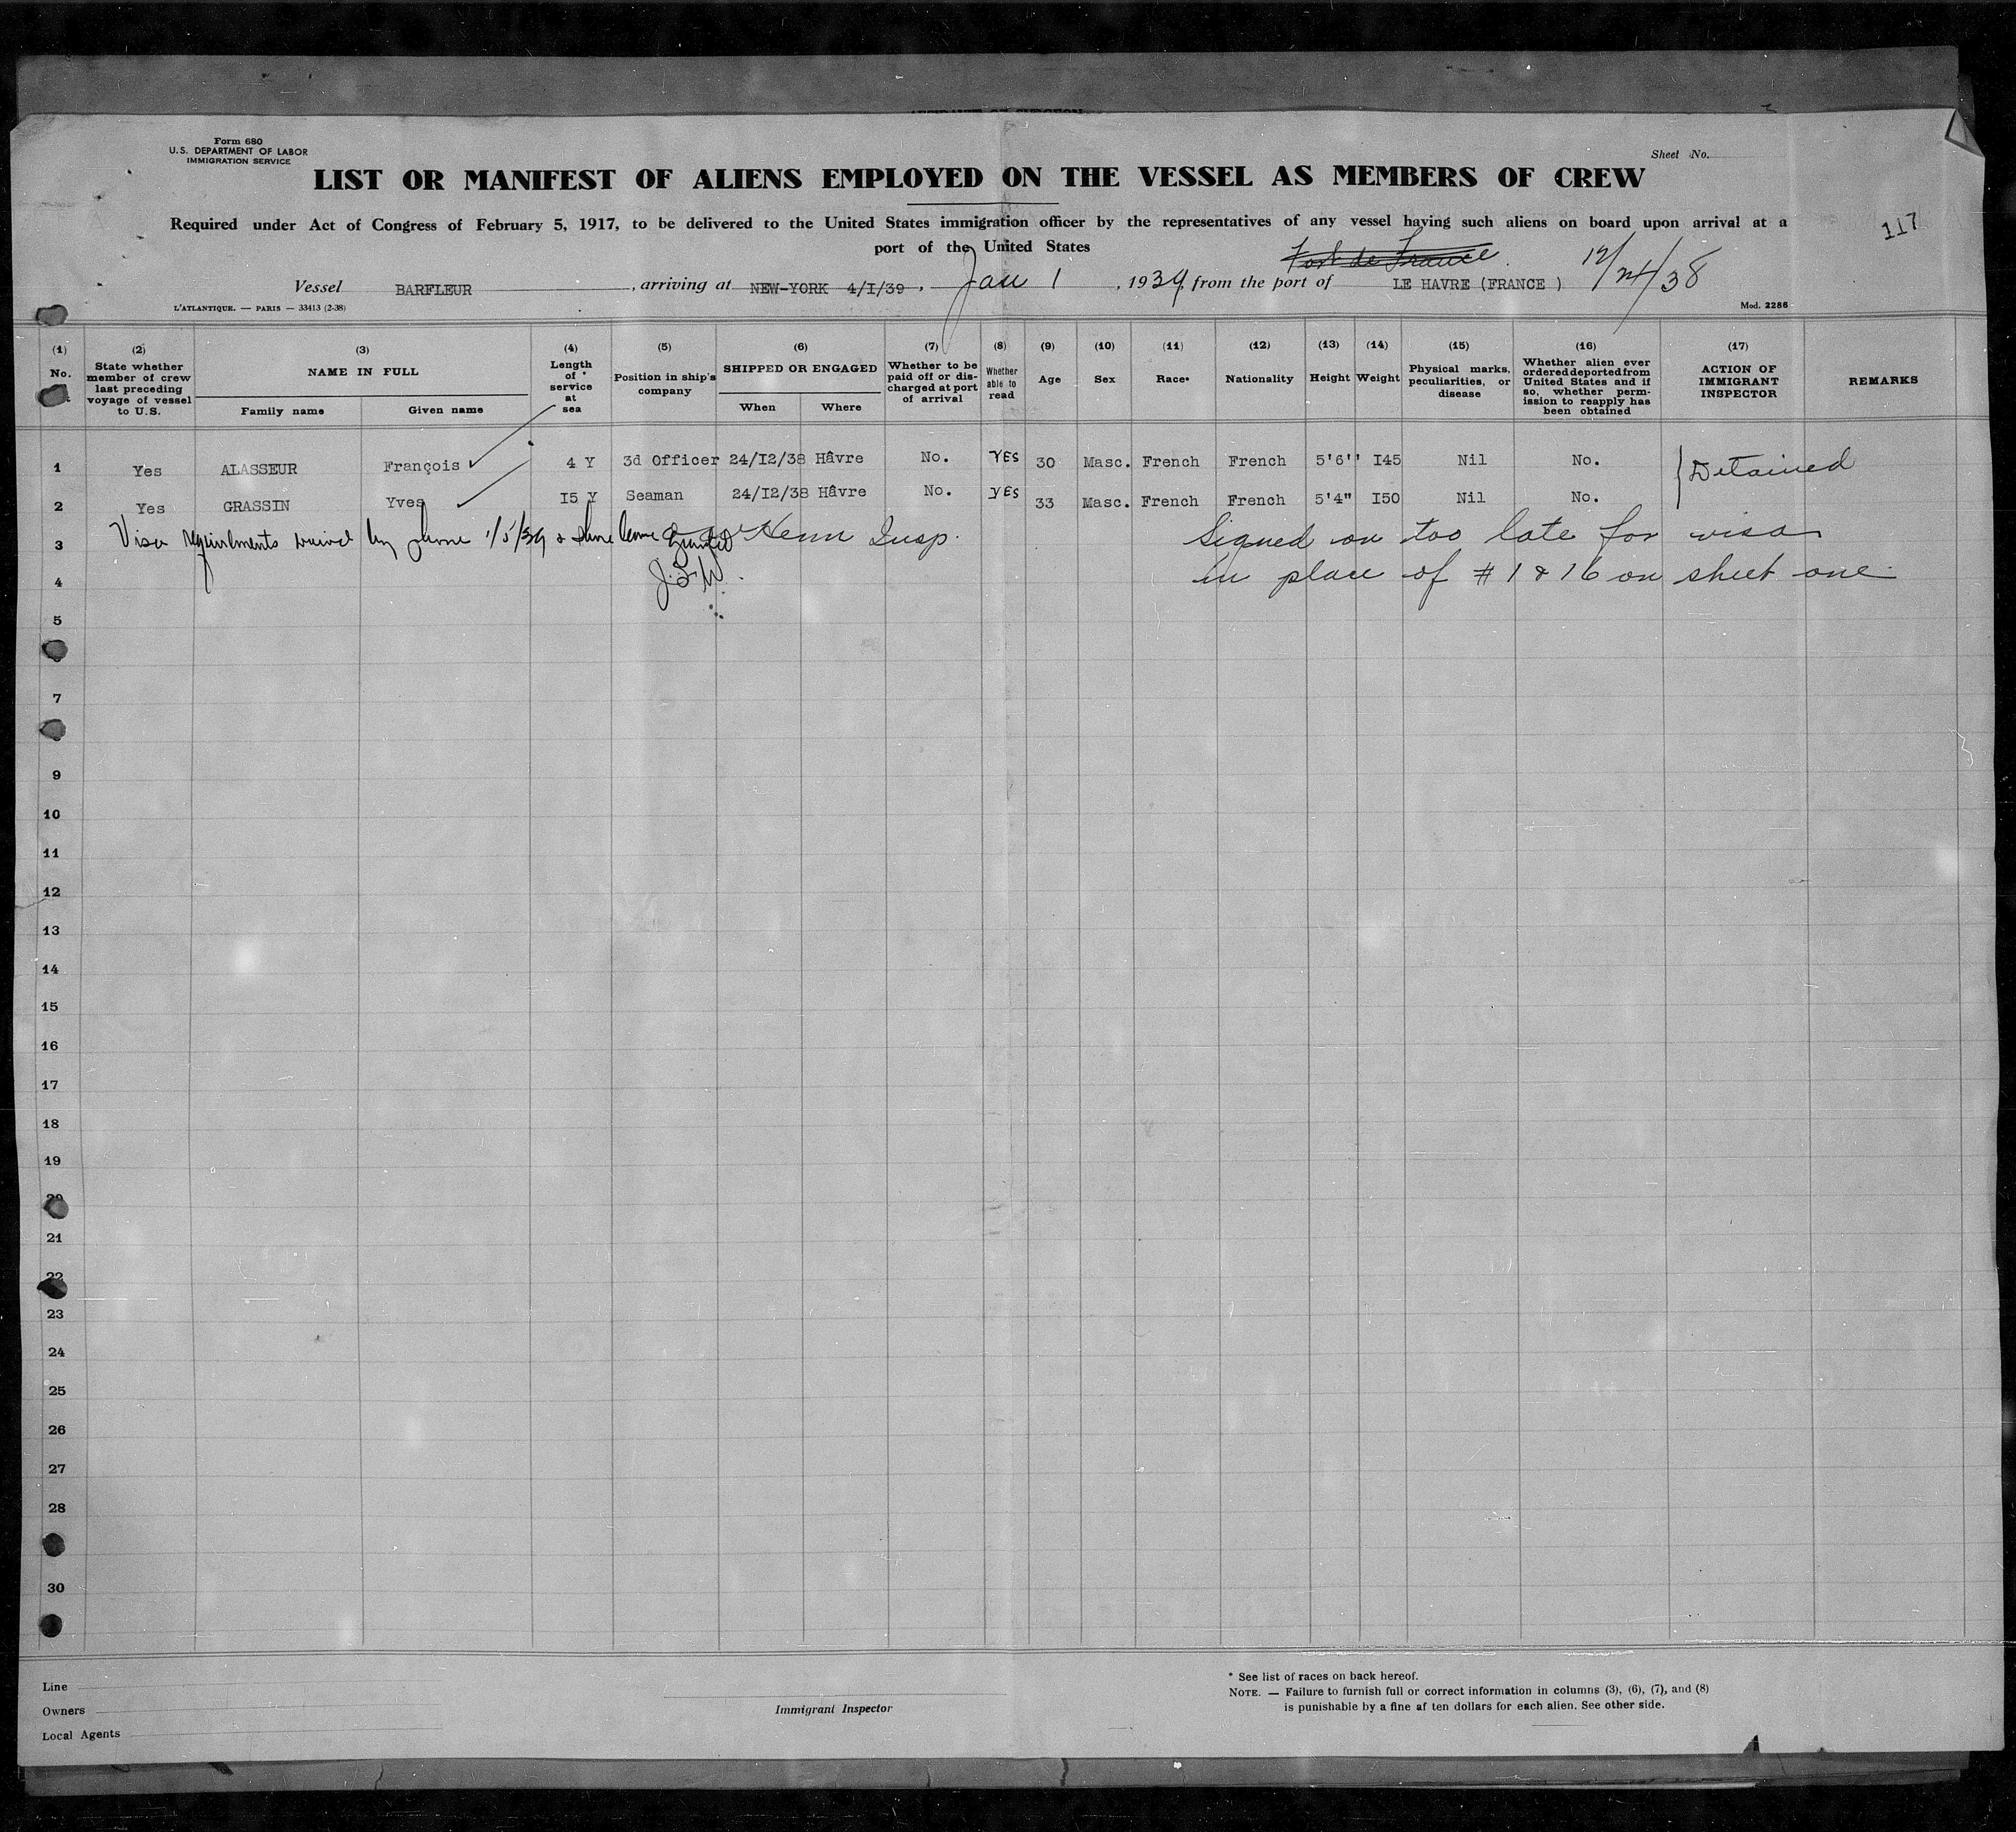 Form 680
U.S. DEPARTMENT OF LABOR
IMMIGRATION SERVICE
Sheet No.
LIST OR MANIFEST OF ALIENS EMPLOYED ON THE VESSEL AS MEMBERS OF CREW
Required under Act of Congress of February 5, 1917, to be delivered to the United States immigration officer by the representatives of any vessel having such aliens on board upon arrival at a
port of the United States
117
Fort de France
Vessel BARFLEUR , arriving at NEW-YORK 4/I/39 , Jan 1 , 1939, from the port of LE HAVRE (FRANCE ) 12/24/38
L'ATLANTIQUE. — PARIS — 33413 (2-38)
Mod. 2286
(1) No.
(2) State whether member of crew last preceding voyage of vessel to U.S.
(3) NAME IN FULL
Family name
Given name
(4) Length of service at sea
(5) Position in ship's company
(6) SHIPPED OR ENGAGED
When
Where
(7) Whether to be paid off or discharged at port of arrival
(8) Whether able to read
(9) Age
(10) Sex
(11) Race*
(12) Nationality
(13) Height
(14) Weight
(15) Physical marks, peculiarities, or disease
(16) Whether alien ever ordered deported from United States and if so, whether permission to reapply has been obtained
(17) ACTION OF IMMIGRANT INSPECTOR
REMARKS
1 Yes ALASSEUR François 4 Y 3d Officer 24/I2/38 Hâvre No. YES 30 Masc. French French 5'6'' I45 Nil No. Detained
2 Yes GRASSIN Yves I5 Y Seaman 24/I2/38 Hâvre No. YES 33 Masc. French French 5'4" I50 Nil No.
3 Visa requirements waived by phone 1/5/39 & shore leave granted Insp. Signed on too late for visa
4 in place of # 1 & 16 on sheet one
5
7
9
10
11
12
13
14
15
16
17
18
19
20
21
22
23
24
25
26
27
28
30
Line
Owners
Local Agents
Immigrant Inspector
* See list of races on back hereof.
NOTE. — Failure to furnish full or correct information in columns (3), (6), (7), and (8)
is punishable by a fine af ten dollars for each alien. See other side.